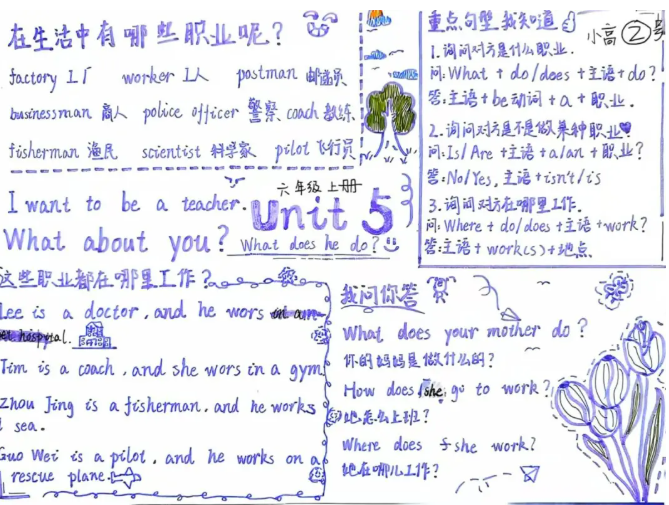 在生活中有哪些职业呢?
factory 工厂 worker 工人 postman 邮递员
businessman 商人 police officer 警察 coach 教练
fisherman 渔民 scientist 科学家 pilot 飞行员
I want to be a teacher.
What about you?
六年级上册
Unit 5
What does he do?
重点句型我知道
小高②号
1.询问对方是什么职业.
问:What + do/does +主语+do?
答:主语+be动词+a+职业.
2.询问对方是不是做某种职业
问:Is/Are +主语+a/an+职业?
答:No/Yes, 主语+isn't/is
3.询问对方在哪里工作.
问:Where + do/does +主语+work?
答:主语+work(s)+地点
这些职业都在哪里工作?
Lee is a doctor, and he wors
hospital.
Tim is a coach, and she wors in a gym
Zhou Jing is a fisherman, and he works
sea.
Guo Wei is a pilot, and he works on a
rescue plane.
我问你答
What does your mother do?
你的妈妈是做什么的?
How does she go to work?
她怎么上班?
Where does she work?
她在哪儿工作?